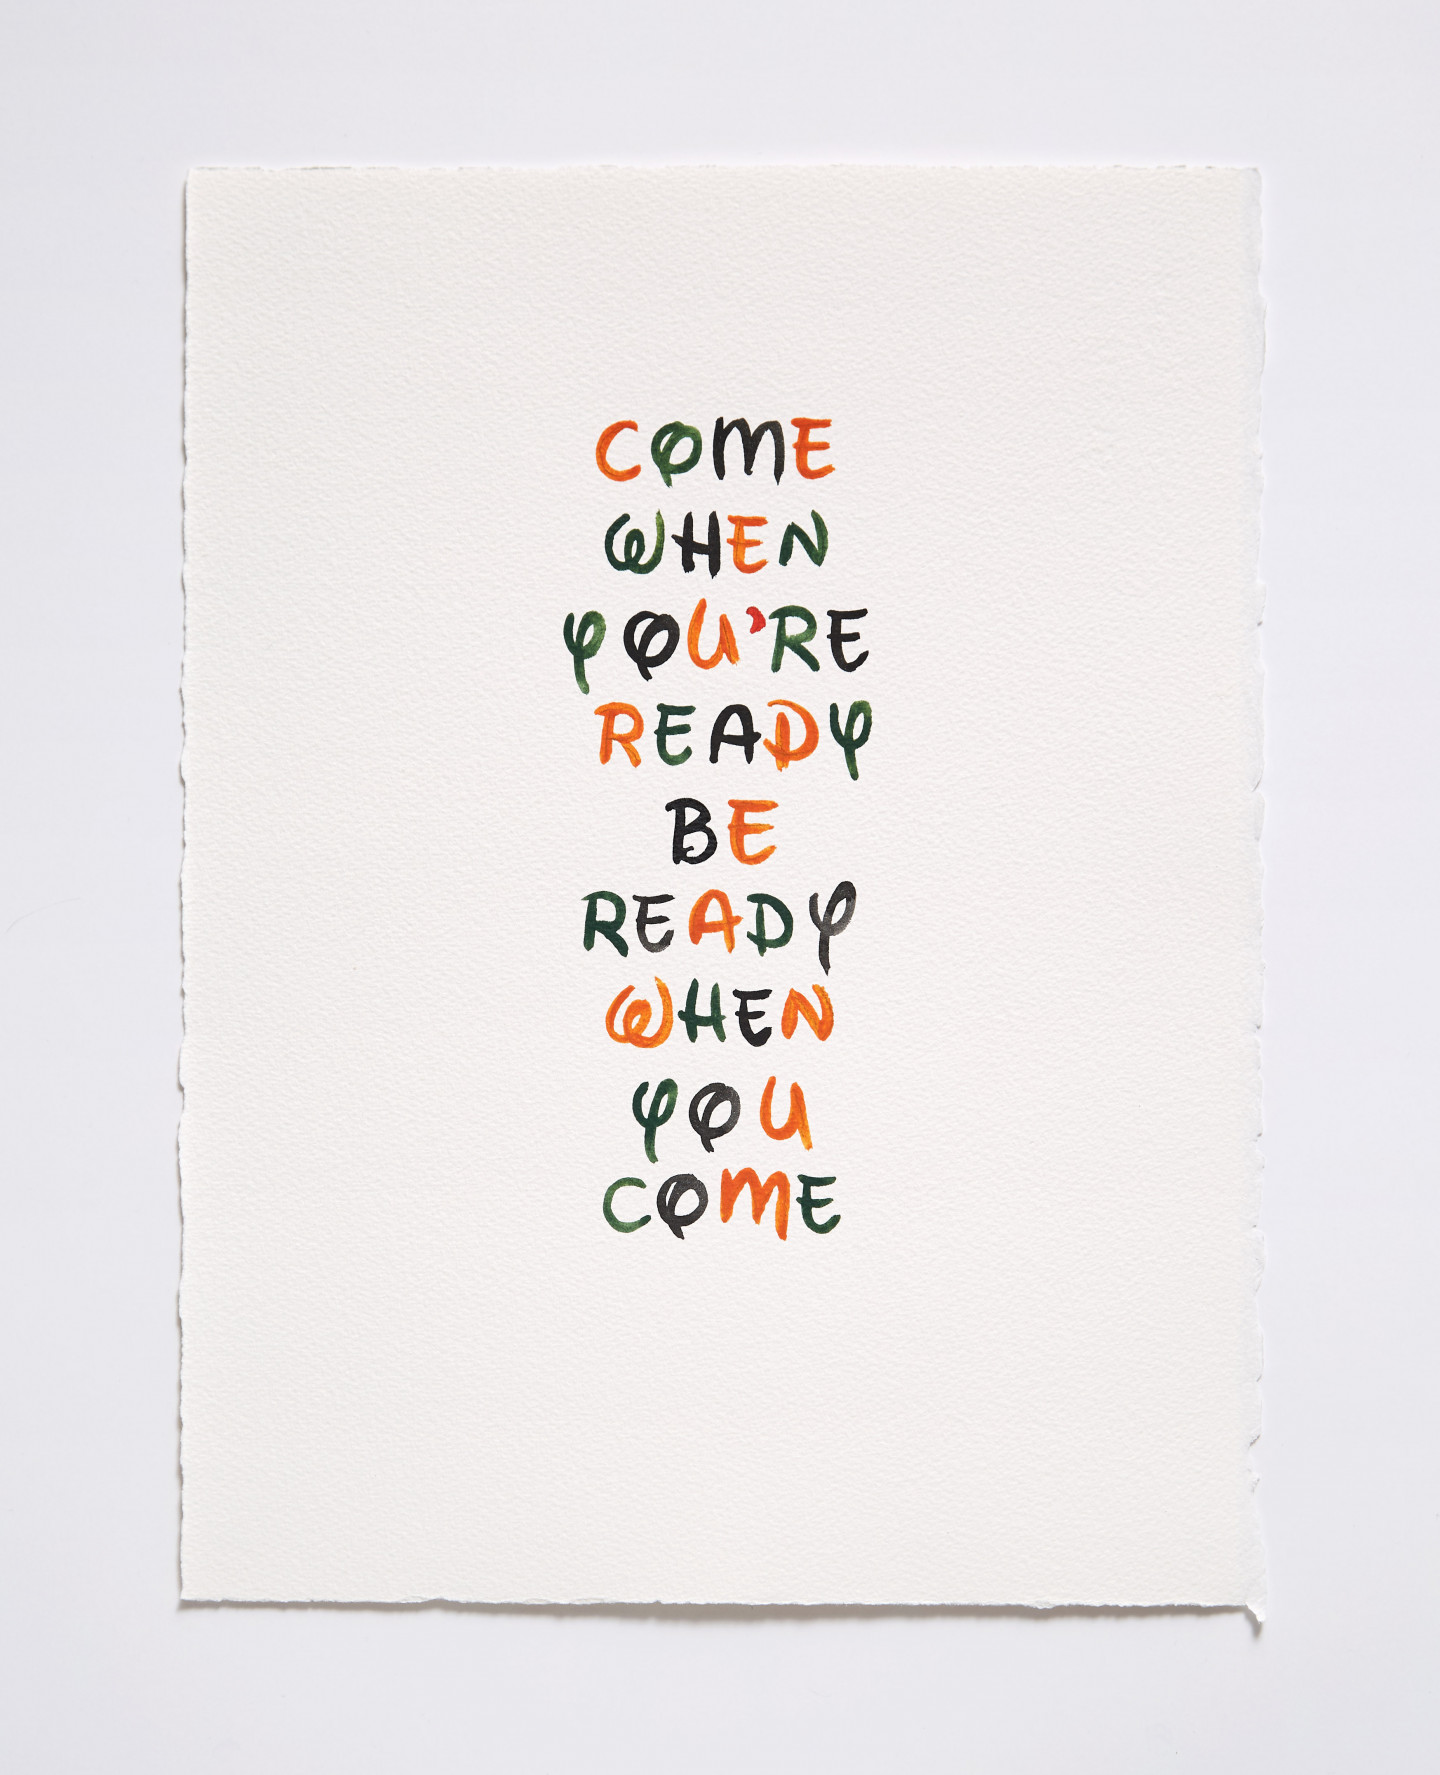 COME
WHEN
YOU'RE
READY
BE
READY
WHEN
YOU
COME